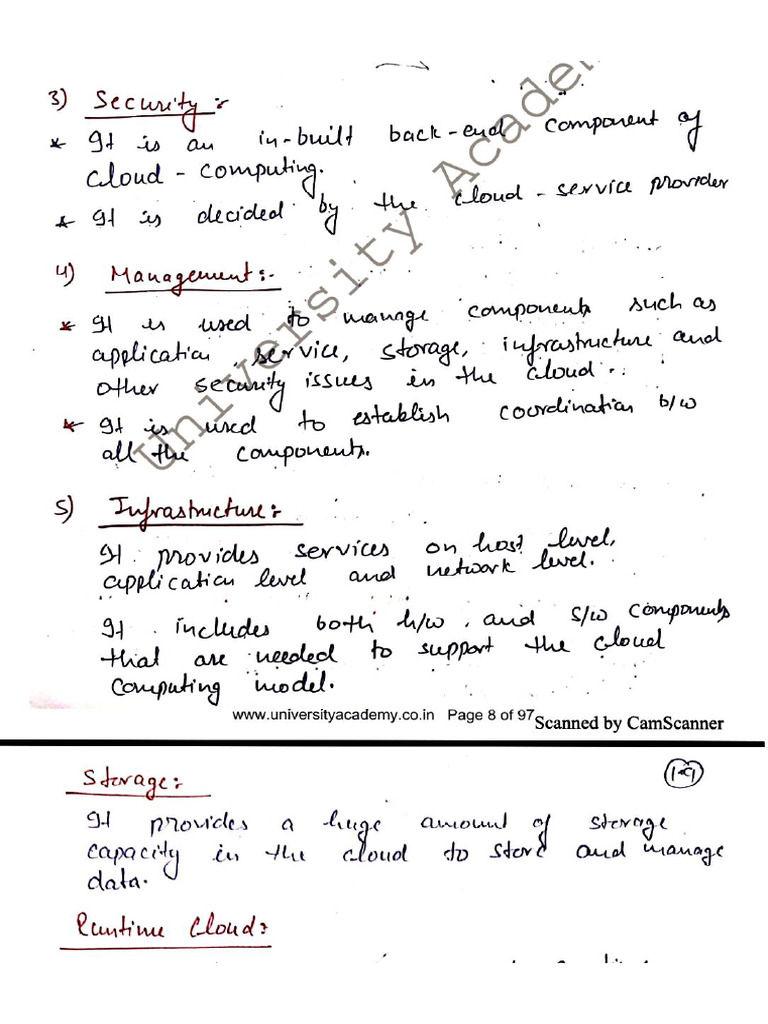 3) Security :-
* It is an in-built back-end component of
cloud - computing.
* It is decided by the cloud - service provider
4) Management :-
* It is used to manage components such as
application, service, storage, infrastructure and
other security issues in the cloud..
* It is used to establish coordination b/w
all the components.
5) Infrastructure :-
It provides services on host level,
application level and network level.
It includes both h/w, and s/w components
that are needed to support the cloud
computing model.
www.universityacademy.co.in Page 8 of 97 Scanned by CamScanner
University Academ
Storage :- 1.9
It provides a huge amount of storage
capacity in the cloud to store and manage
data.
Runtime Cloud :-